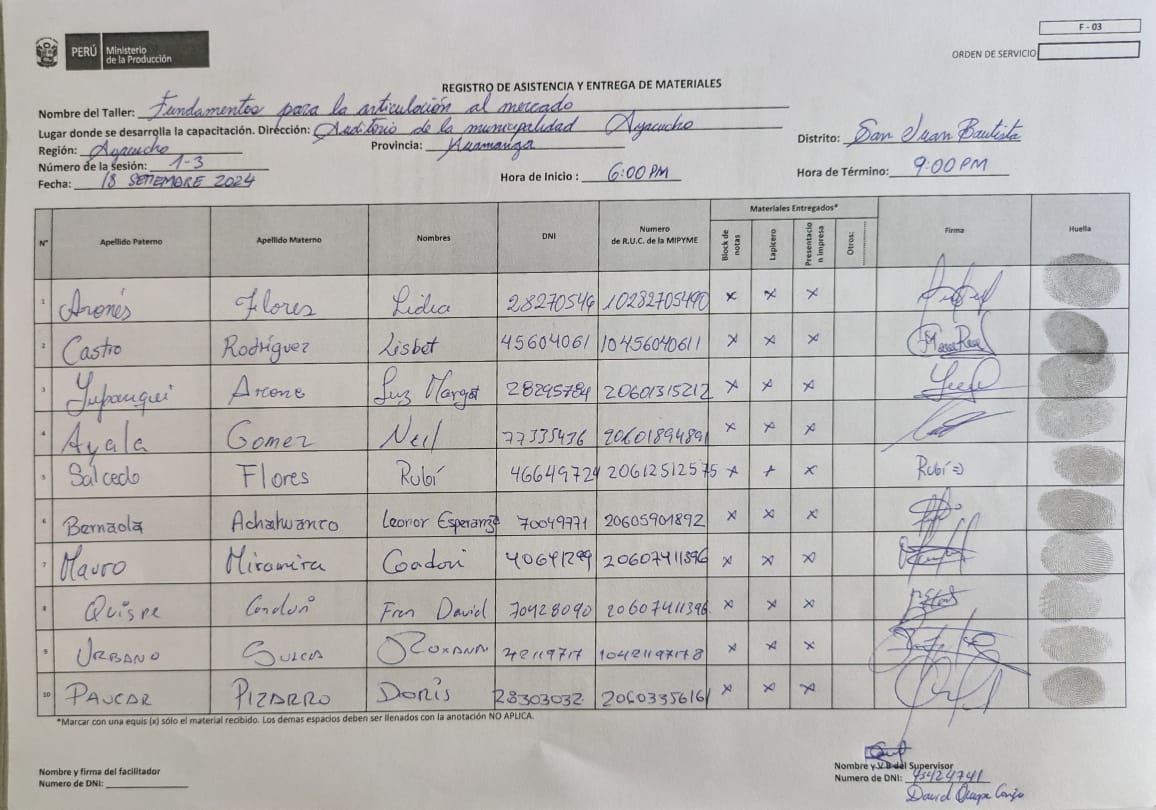 F - 03
PERÚ Ministerio de la Producción
ORDEN DE SERVICIO
REGISTRO DE ASISTENCIA Y ENTREGA DE MATERIALES
Nombre del Taller: Fundamentos para la articulación al mercado
Lugar donde se desarrolla la capacitación. Dirección: Auditorio de la municipalidad Ayacucho
Región: Ayacucho Provincia: Huamanga Distrito: San Juan Bautista
Número de la sesión: 1-3
Fecha: 18 SETIEMBRE 2024 Hora de Inicio : 6:00 PM Hora de Término: 9:00 PM
Materiales Entregados*
N° Apellido Paterno Apellido Materno Nombres DNI Numero de R.U.C. de la MIPYME Block de notas Lapicero Presentacion Impresa Otros: Firma Huella
1 Aronés Flores Lidia 28270549 10282705490 x x x
2 Castro Rodríguez Lisbet 45604061 10456040611 x x x
3 Yupanqui Arone Luz Margot 28295784 20601315212 x x x
4 Ayala Gomez Neil 77335436 20601894891 x x x
5 Salcedo Flores Rubí 46649724 20612512575 x x x Rubí =)
6 Bernaola Achahuanco Leonor Esperanza 70049771 20605901892 x x x
7 Mauro Miramira 40641299 20607411396 x x x
8 Quispe Fren David 70428090 20607411396 x x x
9 URBANO SULCA ROXANA 42119717 10421197178 x x x
10 PAUCAR PIZARRO DORIS 28303032 20603356161 x x x
*Marcar con una equis (x) sólo el material recibido. Los demas espacios deben ser llenados con la anotación NO APLICA.
Nombre y firma del facilitador
Numero de DNI:
Nombre y V.B del Supervisor
Numero de DNI: 45424741
David Quispe